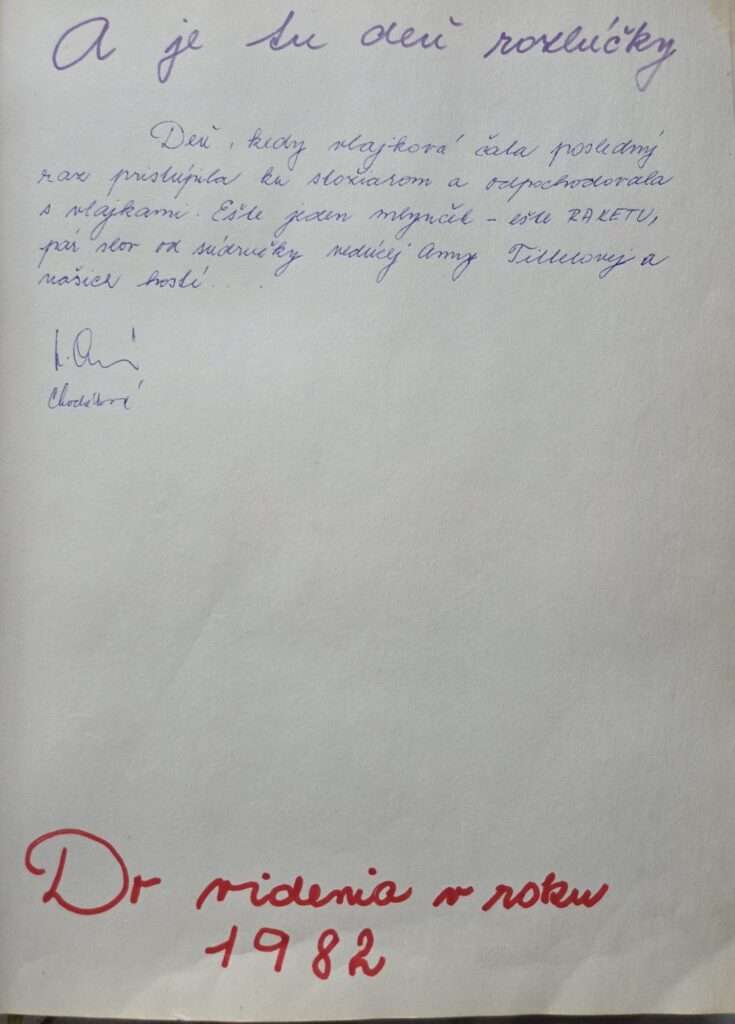 A je tu deň rozlúčky
Deň, kedy vlajková čata posledný
raz pristúpila ku stožiarom a odpochodovala
s vlajkami. Ešte jeden mlynček – ešte RAKETU,
pár slov od súdružky vedúcej Anny a
našich hostí....
Do videnia v roku
1982